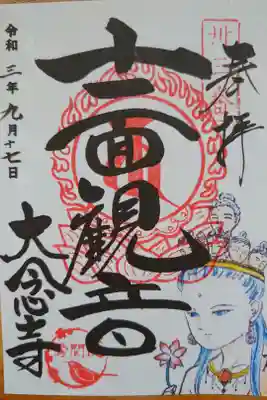 奉拝
十一面観音
大念寺
令和三年九月十七日